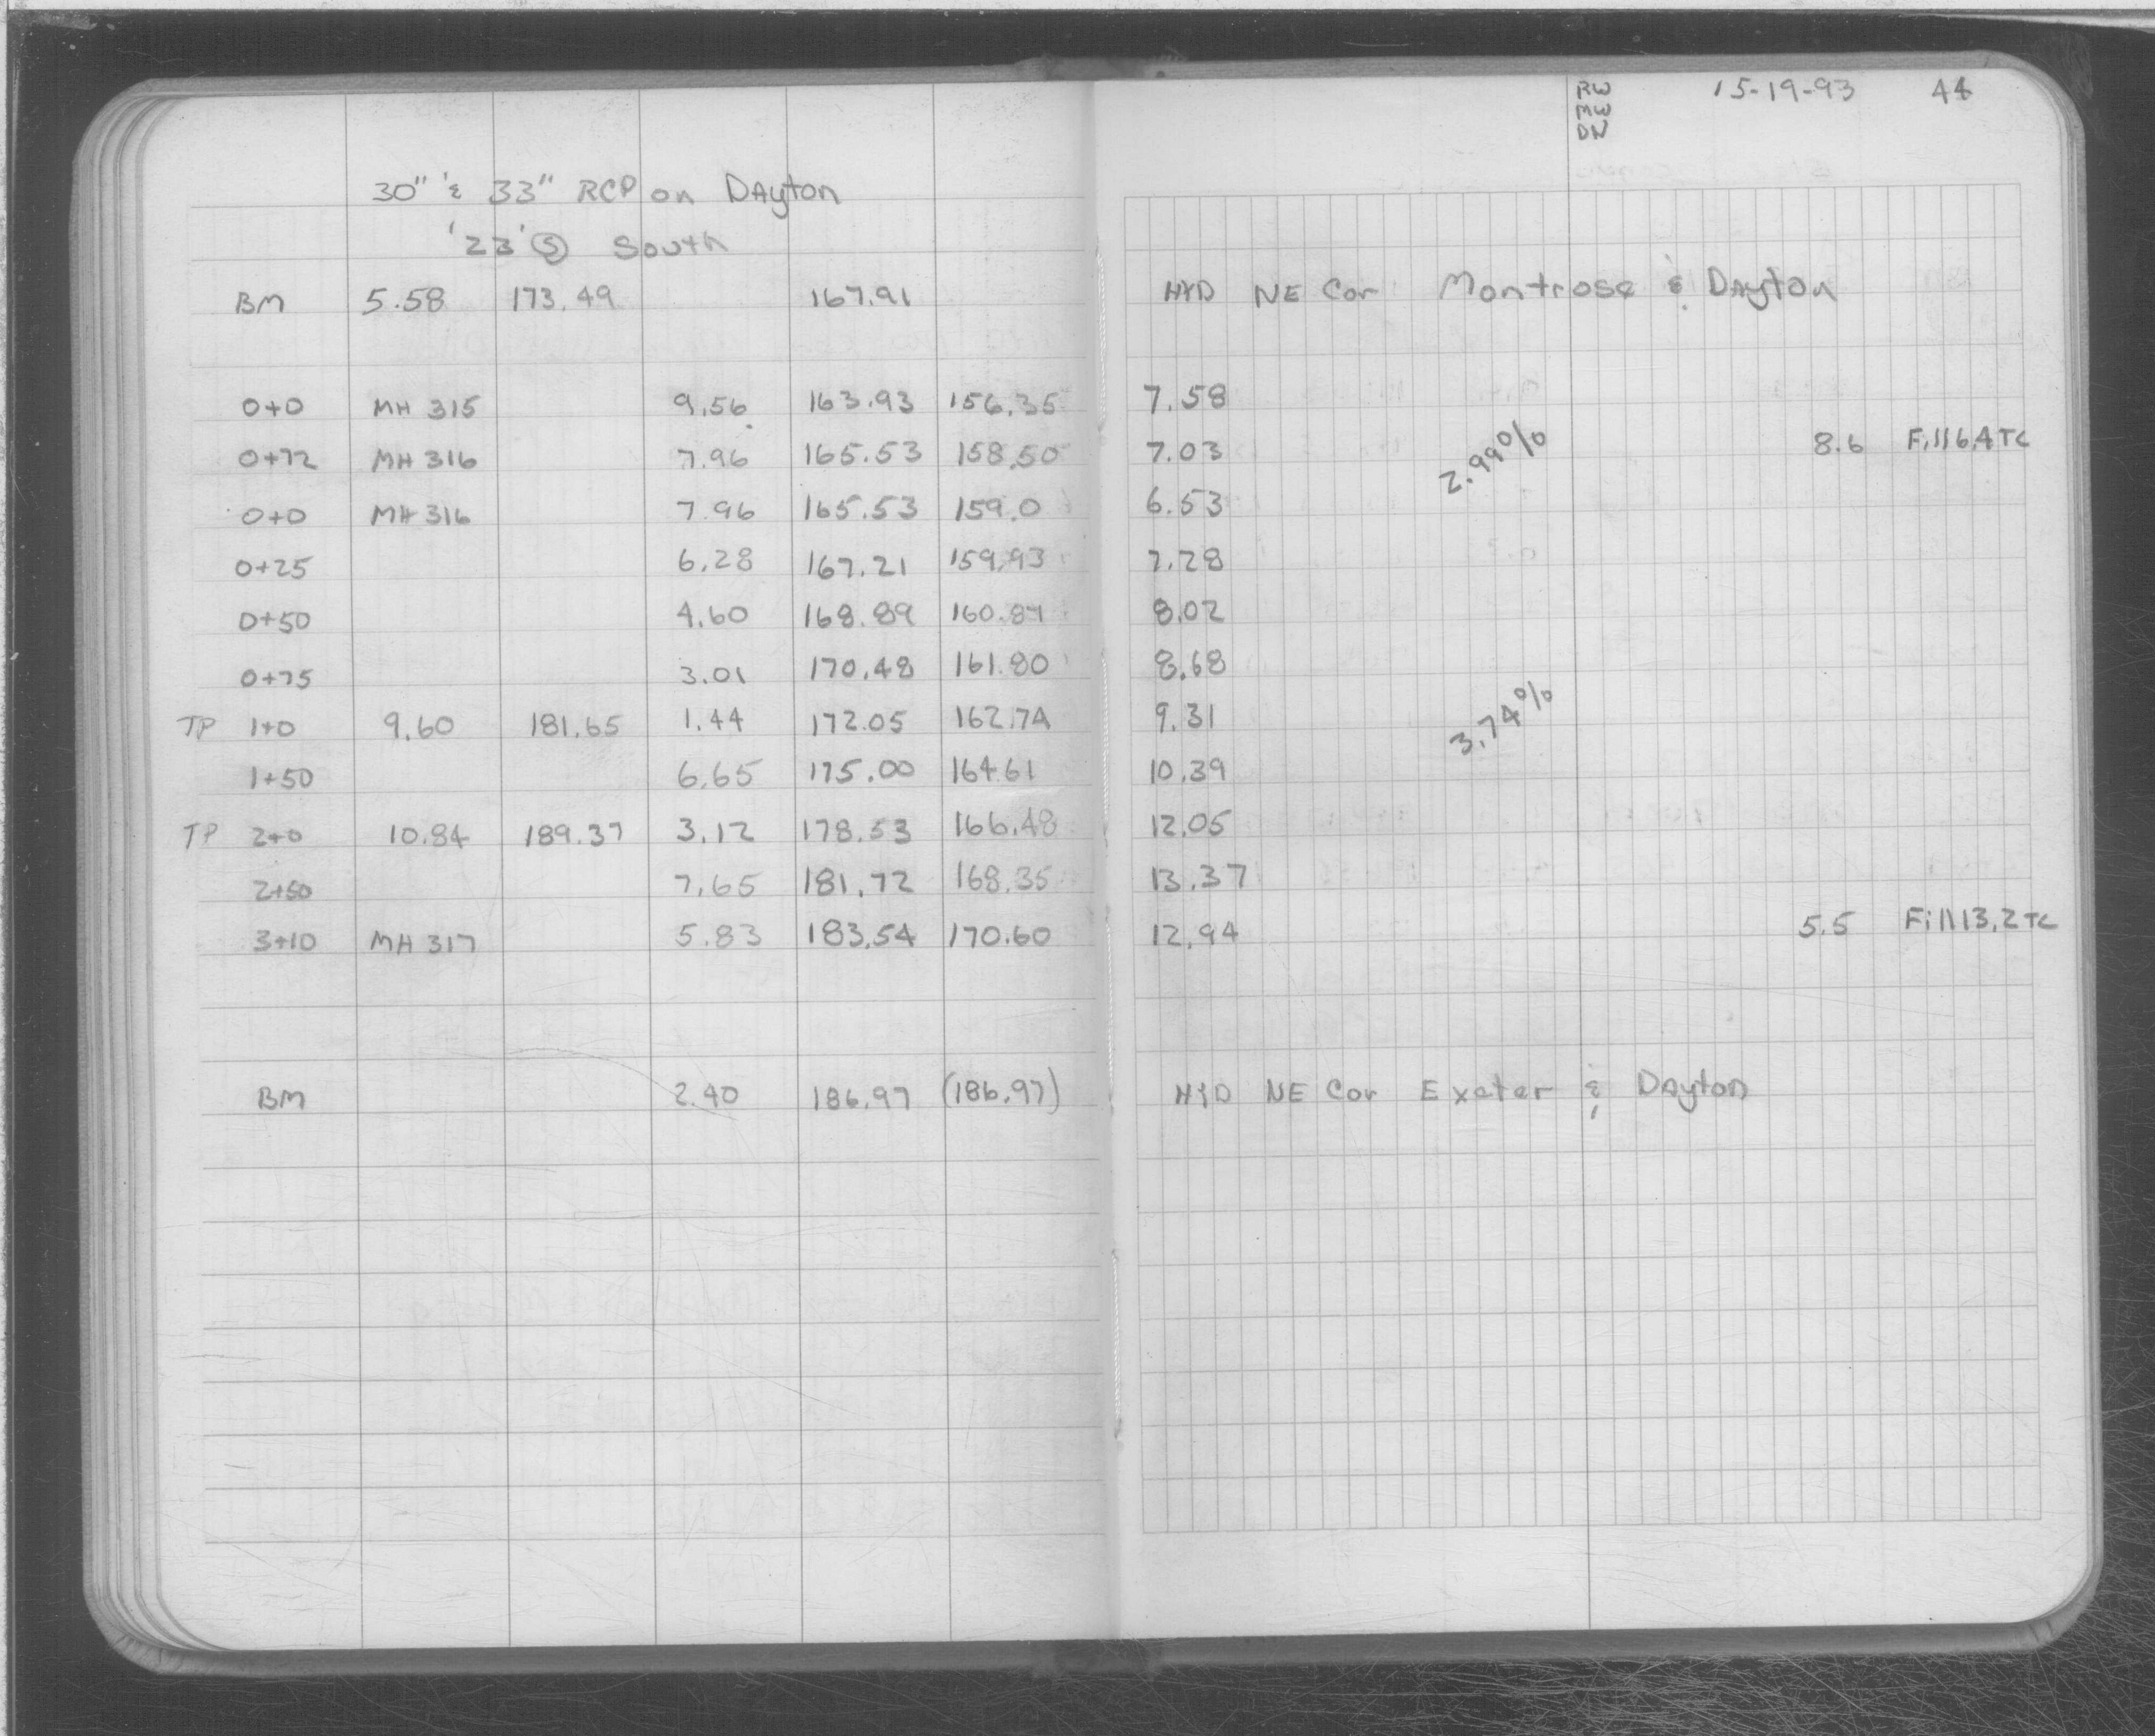 RW 15-19-93 44
MW
DN
30" & 33" RCP on Dayton
23' Ⓢ South
BM 5.58 173.49 167.91 HYD NE Cor Montrose & Dayton
0+0 MH 315 9.56 163.93 156.35 7.58
0+72 MH 316 7.96 165.53 158.50 7.03 2.99% 8.6 Fill 6.4 TC
0+0 MH 316 7.96 165.53 159.0 6.53
0+25 6.28 167.21 159.93 7.28
0+50 4.60 168.89 160.87 8.02
0+75 3.01 170.48 161.80 8.68
TP 1+0 9.60 181.65 1.44 172.05 162.74 9.31 3.74%
1+50 6.65 175.00 164.61 10.39
TP 2+0 10.84 189.37 3.12 178.53 166.48 12.05
2+50 7.65 181.72 168.35 13.37
3+10 MH 317 5.83 183.54 170.60 12.94 5.5 Fill 13.2 TC
BM 2.40 186.97 (186.97) HYD NE Cor Exeter & Dayton